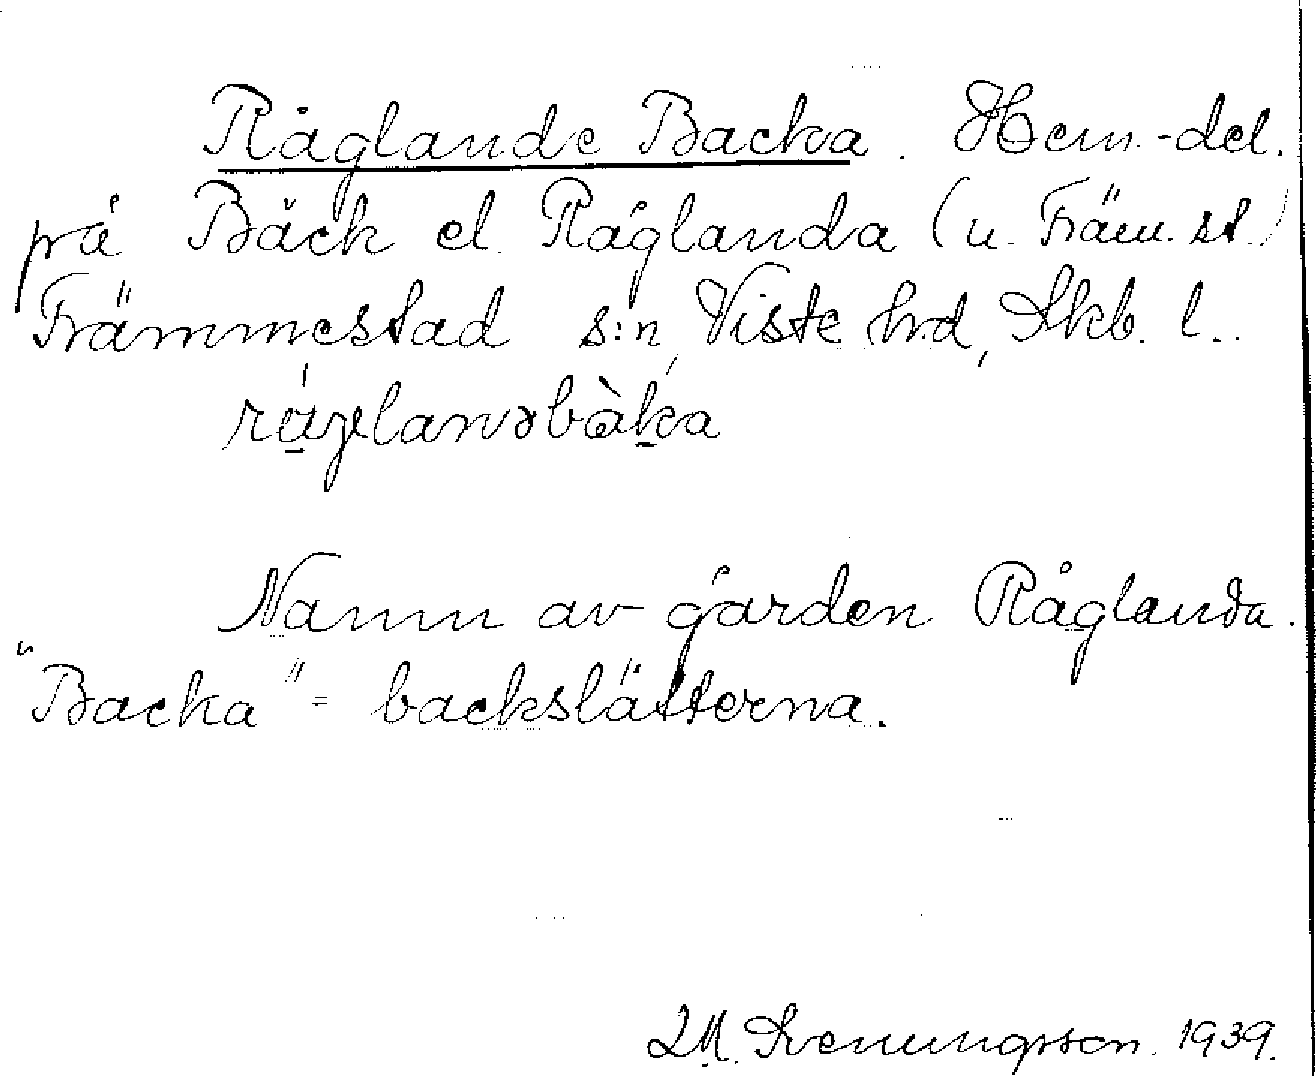 Råglande Backa. Hem.-del.
på Bäck el. Råglanda (u. Främ.st.)
Främmestad s:n, Viste hrd, Skb. l..
Namn av gården Råglanda.
"Backa" = backslätterna.
LM. Svenungsson. 1939.